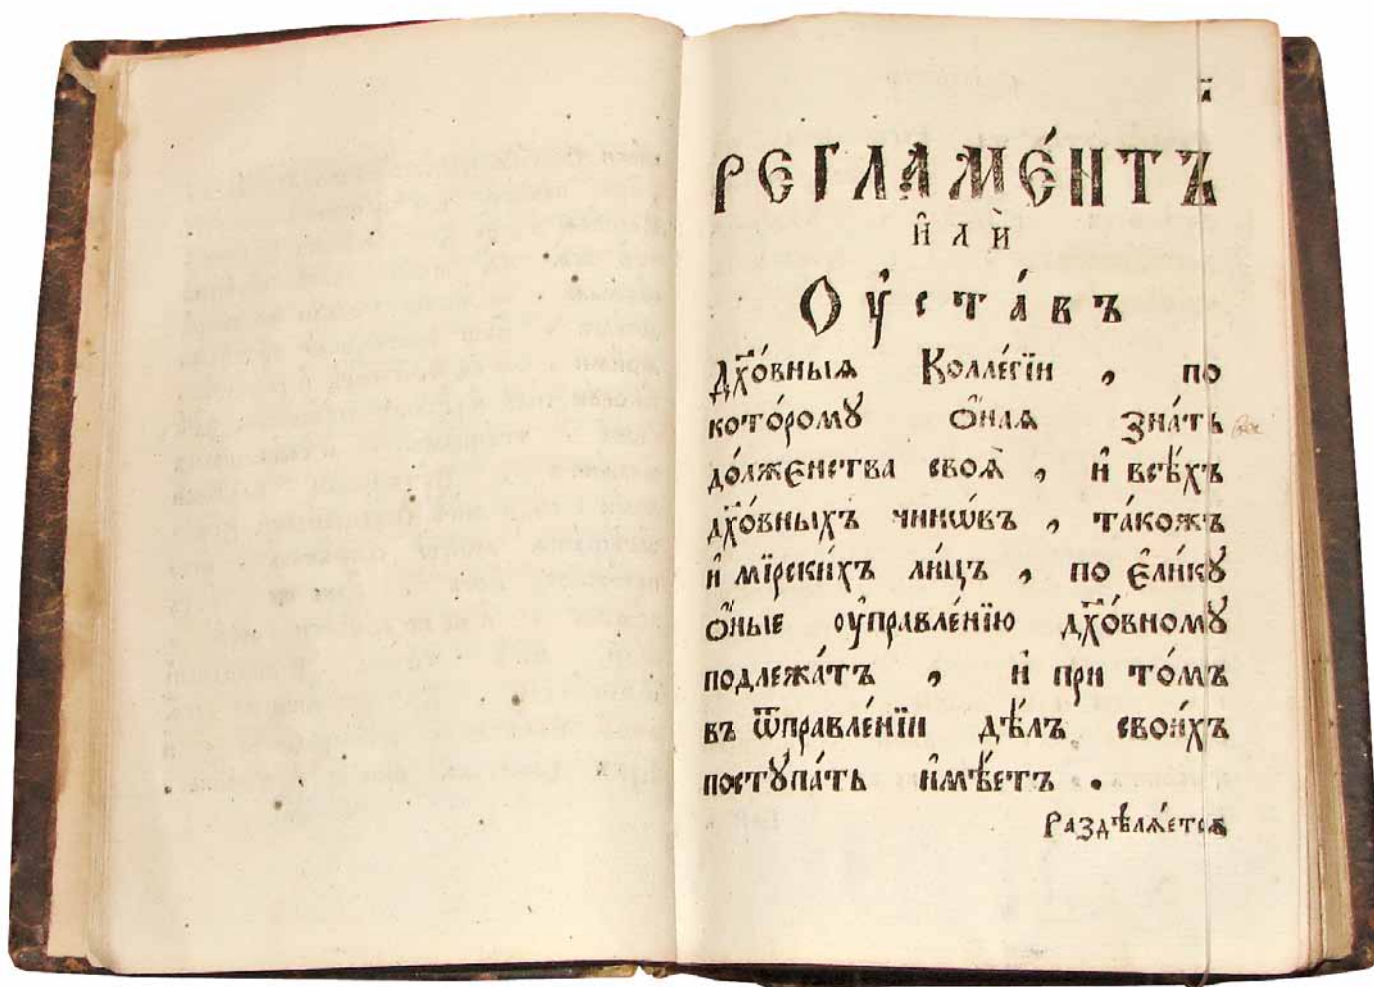 а҃
РЕГЛАМЕ́НТЪ
и҆лѝ
Оу҆ста́въ
дх҃о́вныѧ Колле́гїи , по
кото́рому ѻ҆́наѧ зна́ть
до́лженства своѧ̀ , и҆ всѣ́хъ
дх҃о́вныхъ чинѡ́въ , та́кожъ
и҆ мїрски́хъ ли́цъ , по є҆ли́кꙋ
ѻ҆́ные оу҆правле́нїю дх҃о́вномꙋ
подлежа́тъ , и҆ при то́мъ
въ ѿправле́нїи дѣ́лъ свои́хъ
постꙋпа́ть и҆мѣ́етъ .
Раздѣлѧ́етсѧ